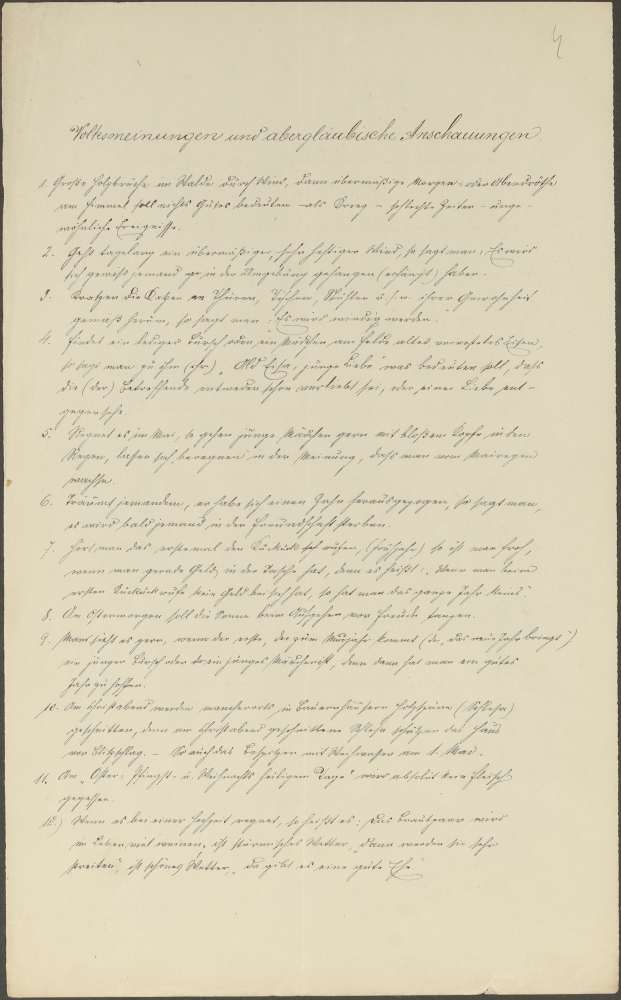 4
Volksmeinungen und abergläubische Anschauungen.
1. Große Holzbrüche im Walde durch Wind, dann übermäßige Morgen- oder Abendröthe
am Himmel soll nichts Gutes bedeuten – als Krieg – schlechte Zeiten – unge-
wöhnliche Ereignisse.
2. Geht tagelang ein übermäßiger, sehr heftiger Wind, so sagt man: Es wird
sich gewiß jemand in der Umgebung gehangen (erhängt) haben.
3. Kratzen die Katzen an Thüren, Tischen, Stühlen u.s.w. ihrer Gewohnheit
gemäß herum, so sagt man: "Es wird windig werden."
4. Findet ein lediger Bursch oder ein Mädchen am Felde altes verrostetes Eisen,
so sagt man zu ihm (ihr) "Old Eisa, junge Liebe" was bedeuten soll, daß
die (der) Betreffende entweder schon verliebt sei, oder einer Liebe ent-
gegensehe.
5. Regnet es im Mai, so gehen junge Mädchen gern mit bloßem Kopfe in den
Regen, lassen sich beregnen in der Meinung, daß man vom Mairegen
wachse.
6. Träumt jemandem, er habe sich einen Zahn herausgezogen, so sagt man,
es wird bald jemand in der Freundschaft sterben.
7. Hört man das erstemal den Kuckuck rufen, (Frühjahr) so ist man froh,
wenn man gerade Geld in der Tasche hat, denn es heißt: "Wenn man beim
ersten Kuckuckrufe kein Geld bei sich hat, so hat man das ganze Jahr keins".
8. Am Ostermorgen soll die Sonne beim Aufgehen vor Freude tanzen.
9. Man sieht es gern, wenn der erste, der zum Neujahr kommt (der "das neue Jahr bringt")
ein junger Bursch oder ein junges Mädchen ist, denn dann hat man ein gutes
Jahr zu hoffen.
10. Am Christabend werden mancherorts in Bauernhäusern Holzspäne (Schleißn)
geschnitten, denn am Christabend geschnittene schützen das Haus
vor Blitzschlag. – So auch das Bespritzen mit Weihwasser am 1. Mai.
11. Am "Oster- Pfingst- u. Weihnachts heiligen Tage" wird absolut kein Fleisch
gegessen.
12.) Wenn es bei einer Hochzeit regnet, so heißt es: Das Brautpaar wird
im Leben viel weinen, ist stürmisches Wetter, "dann werden sie sehr
streiten", ist schönes Wetter, "da gibt es eine gute Ehe"